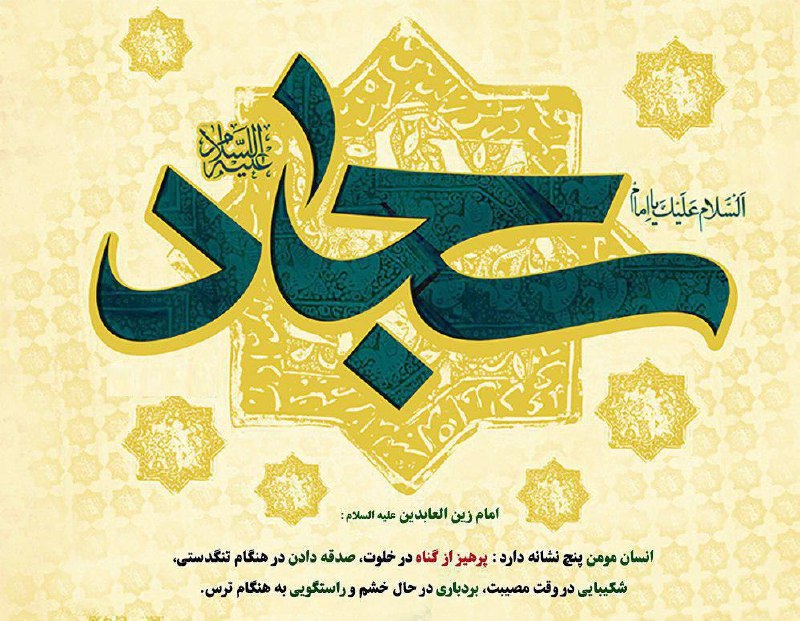 السلام علیک یا امام
سجاد
علیه السلام
امام زین العابدین علیه السلام :
انسان مومن پنج نشانه دارد : پرهیز از گناه در خلوت، صدقه دادن در هنگام تنگدستی،
شکیبایی در وقت مصیبت، بردباری در حال خشم و راستگویی به هنگام ترس.